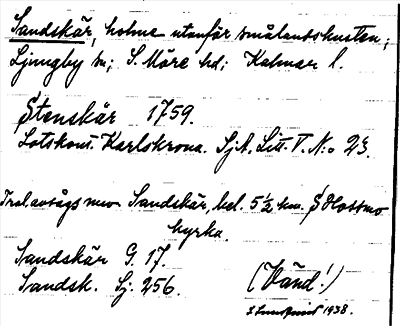 Sandskär, holme utanför smålandskusten;
Ljungby sn; S. Möre hd; Kalmar l.
Stenskär 1759.
Lotskont. Karlskrona. Sj.k. Litt. V. No 23.
Trol. avsågs nuv. Sandskär, bel. 5½ km. S Hossmo
kyrka.
Sandskär G. 17.
Sandsk. Sj. 256.
(Vänd!)
1938.